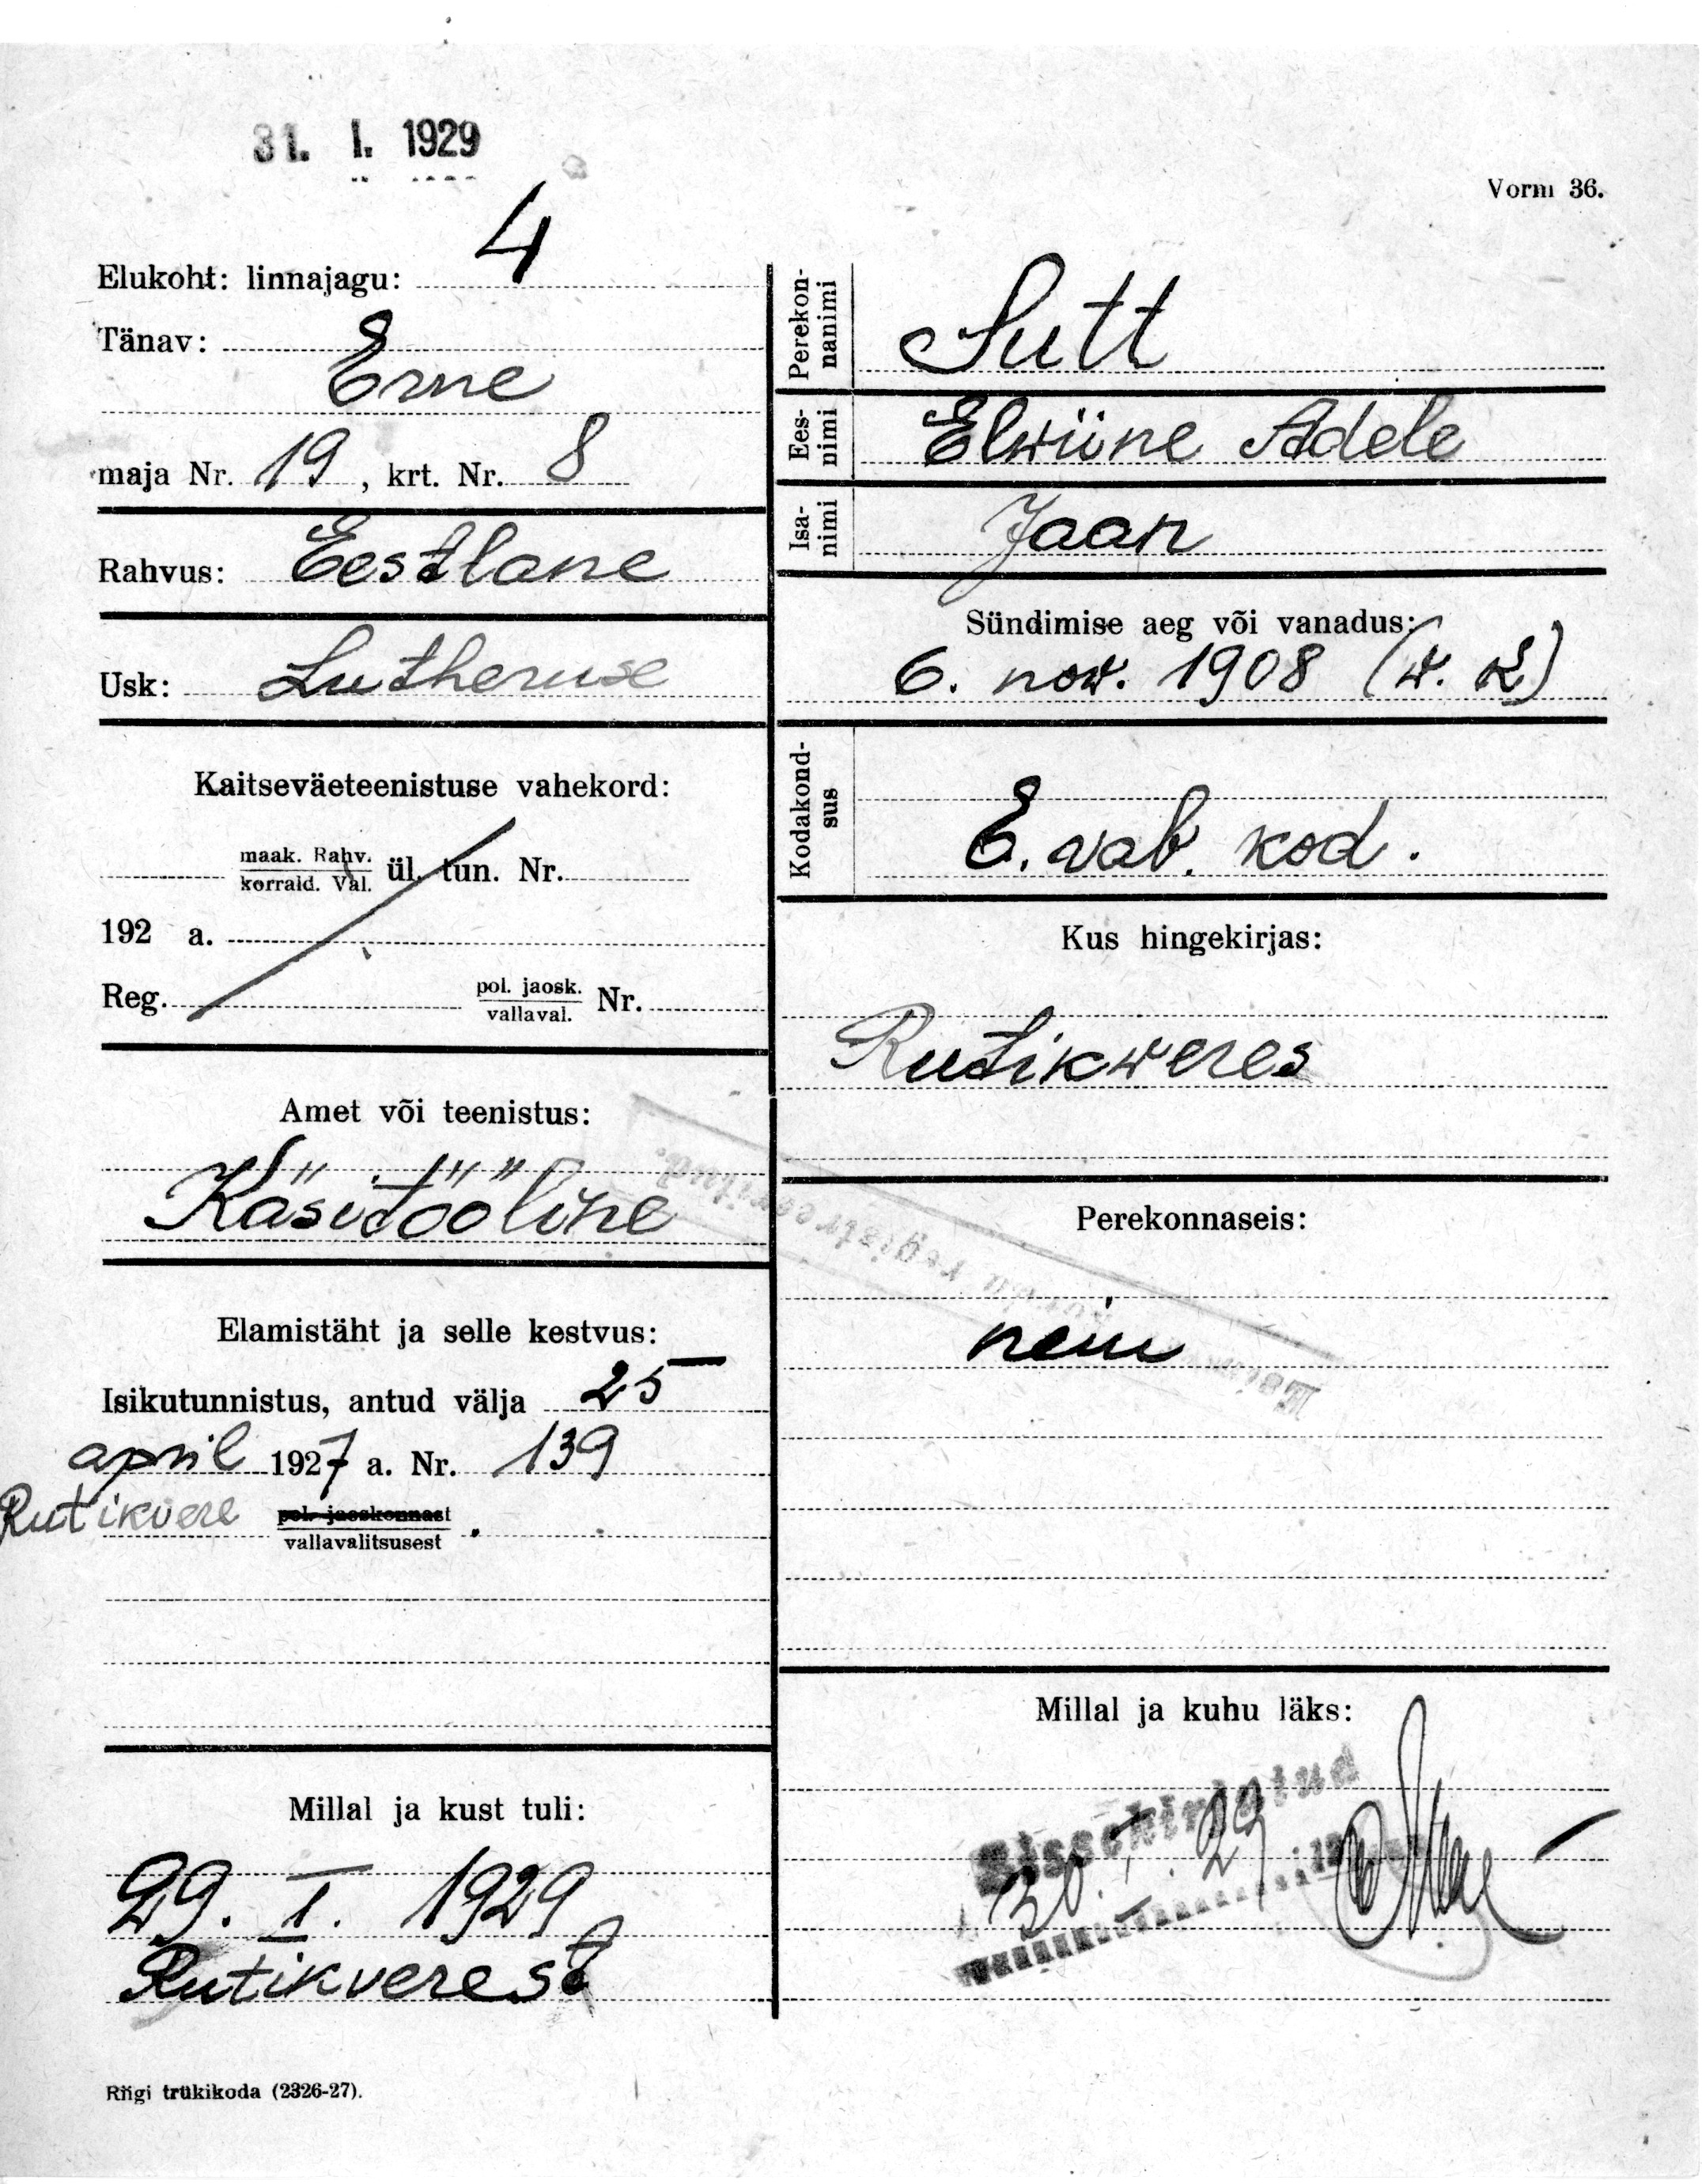 31. I. 1929
Vorm 36.
Elukoht: linnajagu: 4
Tänav:
Erne
maja Nr. 19, krt. Nr. 8
Rahvus: Eestlane
Usk: Lutheruse
Kaitseväeteenistuse vahekord:
maak. Rahv.
korrald. Väl. ül. tun. Nr.
192 a.
Reg. pol. jaosk. Nr.
vallaval.
Amet või teenistus:
Käsitööline
Elamistäht ja selle kestvus:
Isikutunnistus, antud välja 25
april 1927 a. Nr. 139
Rutikvere pol. jaoskonnast
vallavalitsusest
Millal ja kust tuli:
29. I. 1929
Rutikverest
Riigi trükikoda (2326-27).
Perekon-
nanimi
Sutt
Ees-
nimi
Elwiine Adele
Isa-
nimi
Jaan
Sündimise aeg või vanadus:
6. now. 1908 (w. k)
Kodakond-
sus
E. vab. kod.
Kus hingekirjas:
Rutikweres
registreeritud.
Perekonnaseis:
neiu
Millal ja kuhu läks:
Sissekirjutud
30. I. 29